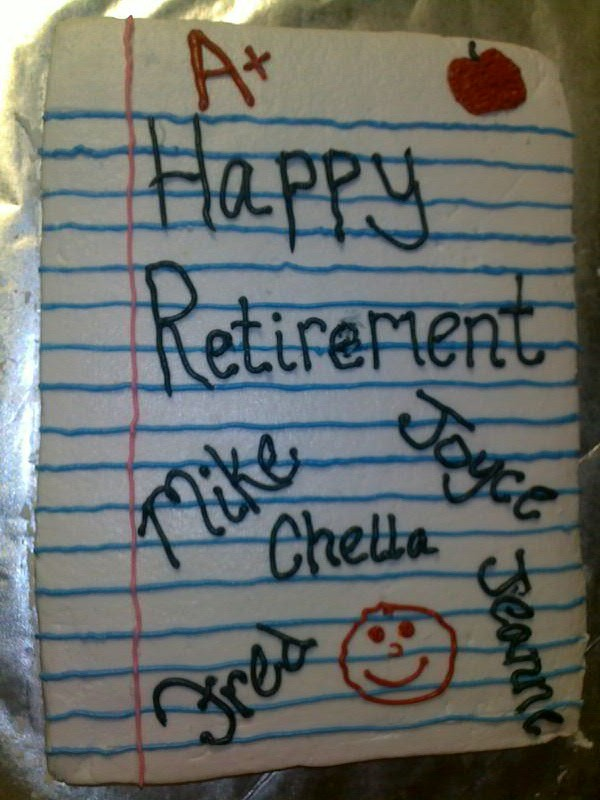 A+
Happy
Retirement
Mike
Joyce
Chella
Fred
Jeanne